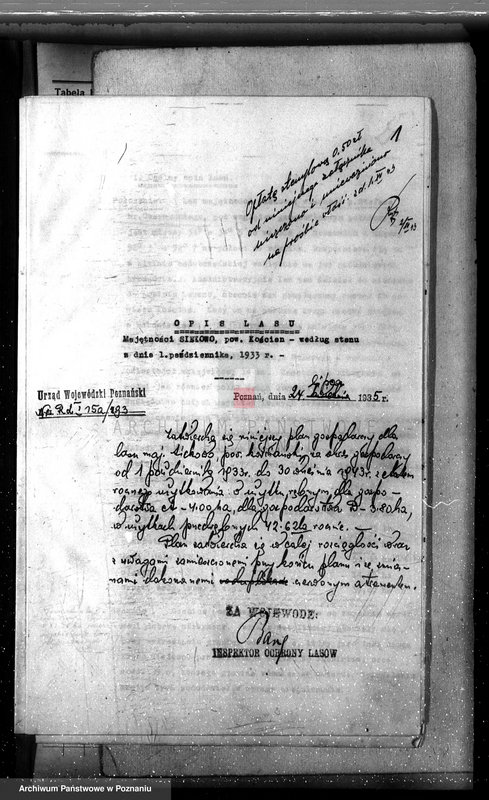 Tabela
1
Opłatę stemplową 0.50 zł
od niniejszego załącznika
uiszczono i unieważniono
na prośbie
OPIS LASU
Majętności SIEKOWO, pow. Kościan - według stanu
z dnia 1.października, 1933 r. -
Urząd Wojewódzki Poznański
Poznań, dnia 24 lipca 1935 r.
ARCHIWUM PAŃSTWOWE
Zatwierdza się niniejszy plan gospodarczy dla
lasu maj. Siekowo pow. kościański, na okres gospodarczy
od 1 października 1933 r. do 30 września 1943 r. z etatem
rocznego użytkowania w użytku rębnym, dla gospo-
darstwa A - 4.00 ha, dla gospodarstwa B - 3.80 ha,
w użytkach przedrębnych 42.62 ha rocznie. -
Plan zatwierdza się w całej rozciągłości wraz
z uwagami zamieszczonymi przy końcu planu i ze zmia-
nami dokonanemi czerwonym atramentem.
ZA WOJEWODĘ:
INSPEKTOR OCHRONY LASÓW
Archiwum Państwowe w Poznaniu